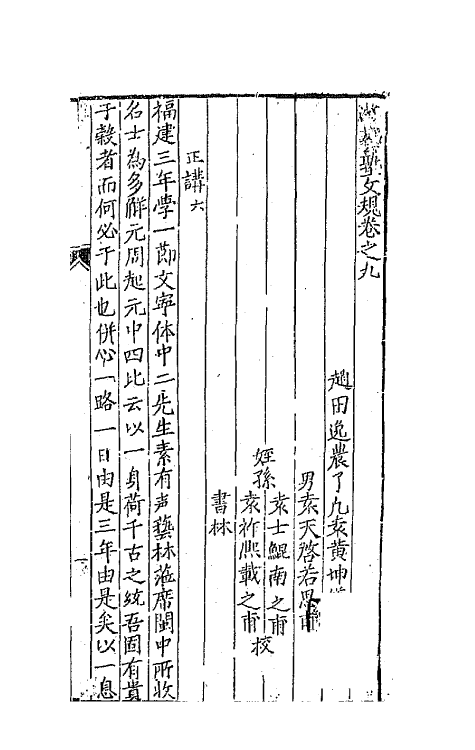 游藝塾文規卷之九
趙田逸農了凡袁黃坤儀
男袁天啓若思甫
姪孫
袁士鯤南之甫
袁祚熙載之甫
挍
書林
正講六
福建三年學一節文寧体中二先生素有声藝林蒞席閩中所收
名士為多觧元周起元中四比云以一身荷千古之統吾固有貴
于穀者而何必于此也併心一路一日由是三年由是矣以一息